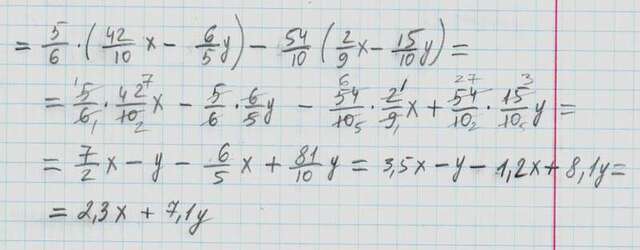 = 5/6 · (42/10 x − 6/5 y) − 54/10 (2/9 x − 15/10 y) =
= 5/6 · 42/10 x − 5/6 · 6/5 y − 54/10 · 2/9 x + 54/10 · 15/10 y =
= 7/2 x − y − 6/5 x + 81/10 y = 3,5x − y − 1,2x + 8,1y =
= 2,3x + 7,1y